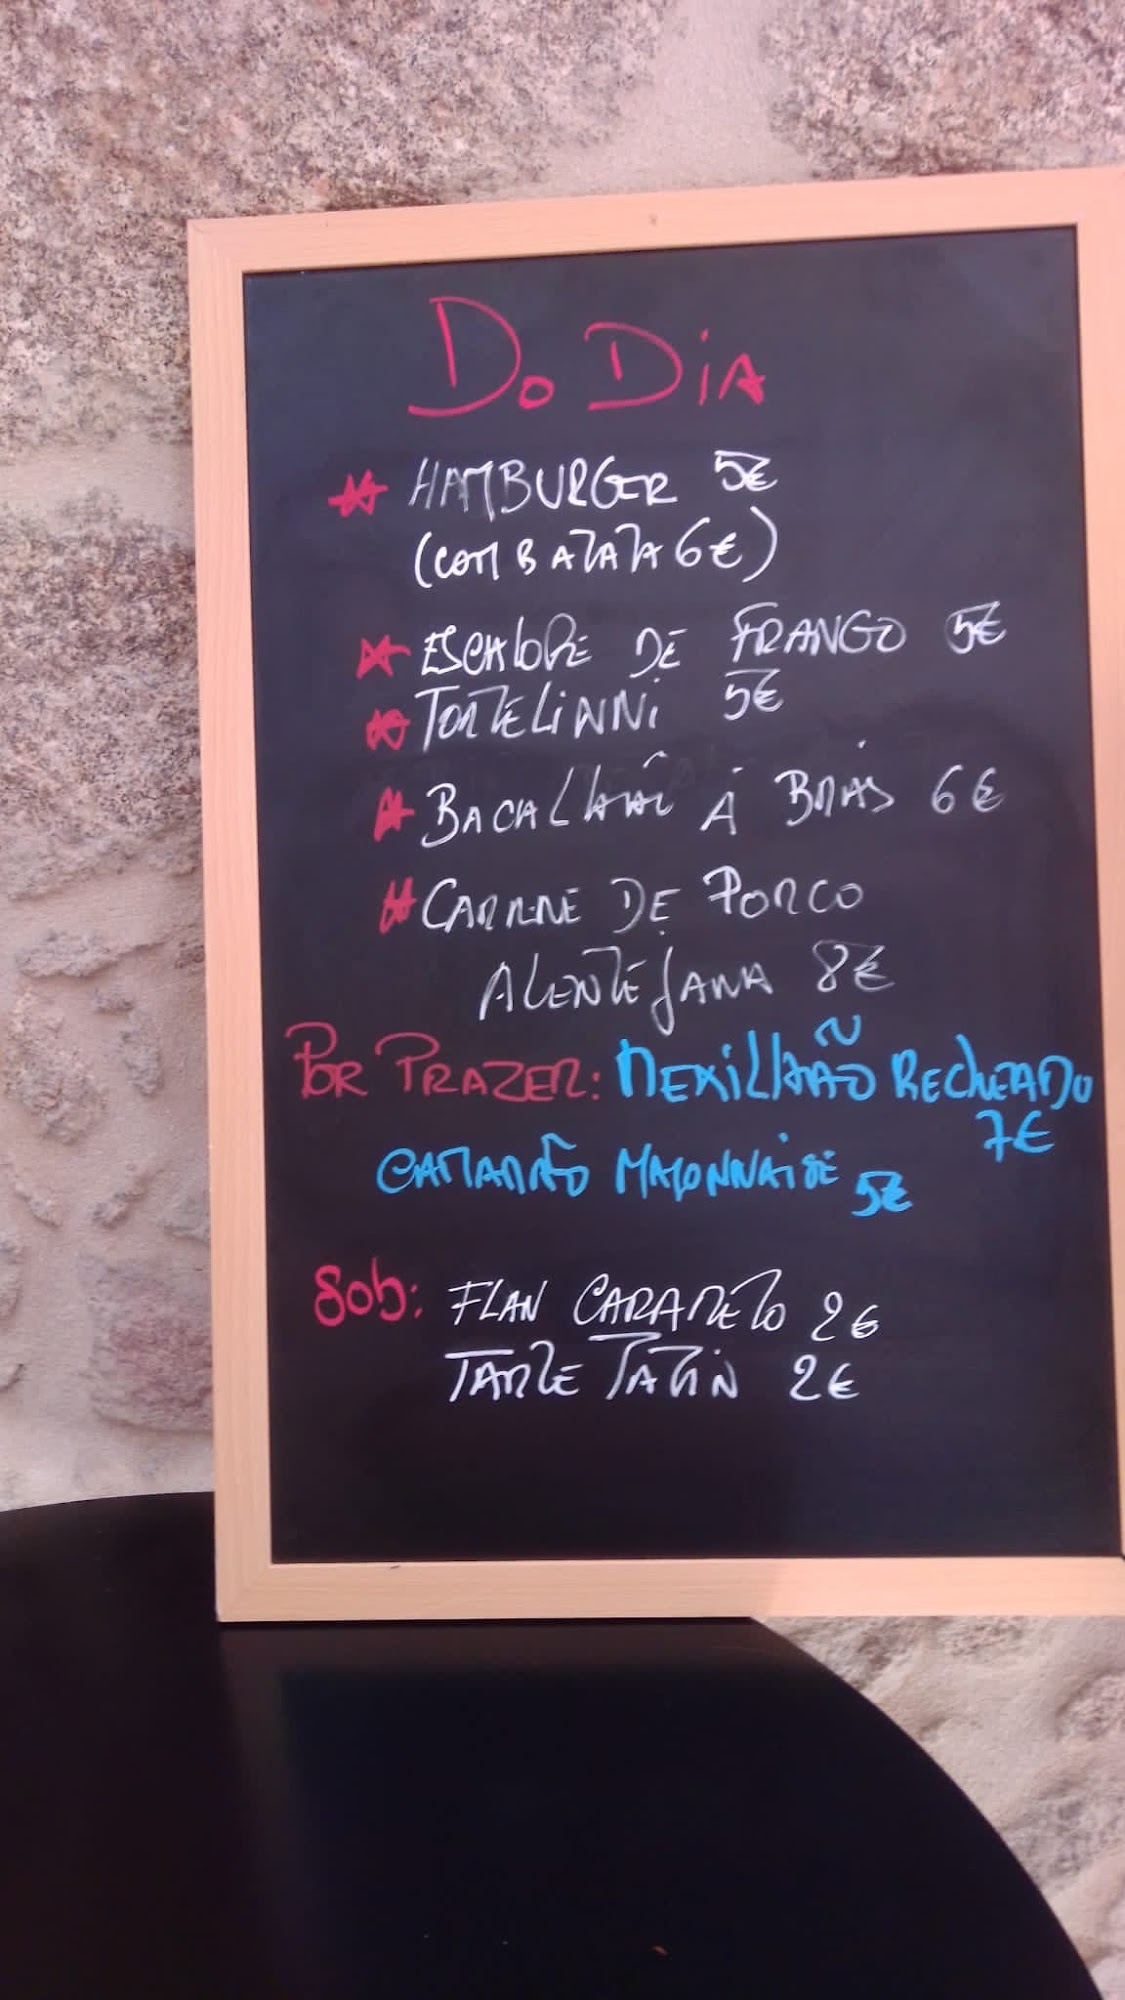 Do Dia
HAMBURGER 5€
(COM BATATA 6€)
ESCALOPE DE FRANGO 5€
TORTELINNI 5€
BACALHAU Á BRÁS 6€
CARNE DE PORCO
ALENTEJANA 8€
POR PRAZER: MEXILHÃO RECHEADO
7€
CAMARÃO MAYONNAISE 5€
Sob: FLAN CARAMELO 2€
TARTE TATIN 2€